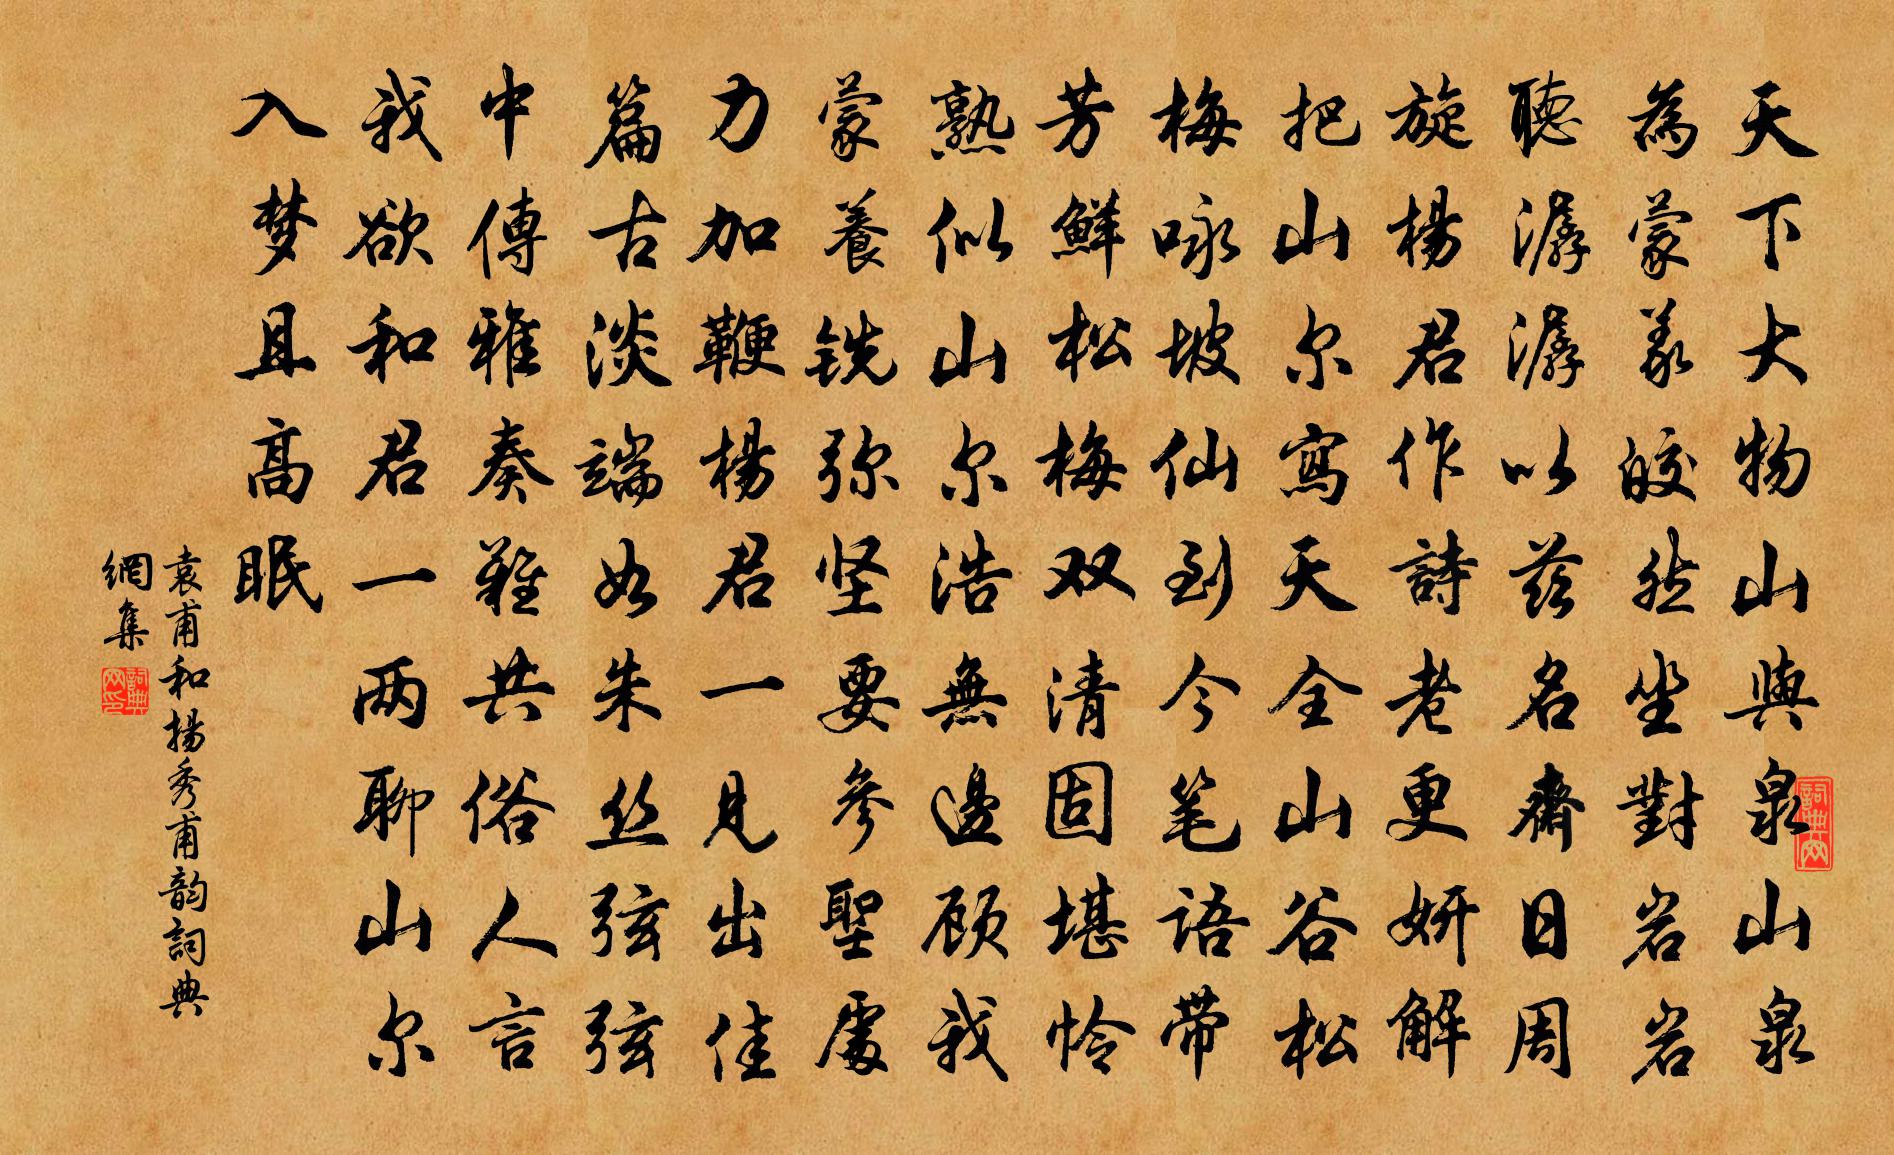 天下大物山與泉山泉
為蒙義皎然坐對岩岩
聽潺潺以茲名齋日周
旋楊君作詩老更妍解
把山尔寫天全山谷松
梅咏坡仙到今笔語带
芳鮮松梅双清固堪怜
熟似山尔浩無邊顾我
蒙養铣弥坚要參聖處
力加鞭楊君一見出佳
篇古淡端如朱丝弦弦
中傳雅奏難共俗人言
我欲和君一两聊山尔
入梦且高眠
袁甫和揚秀甫韵詞典
網集
詞典网
詞典网印